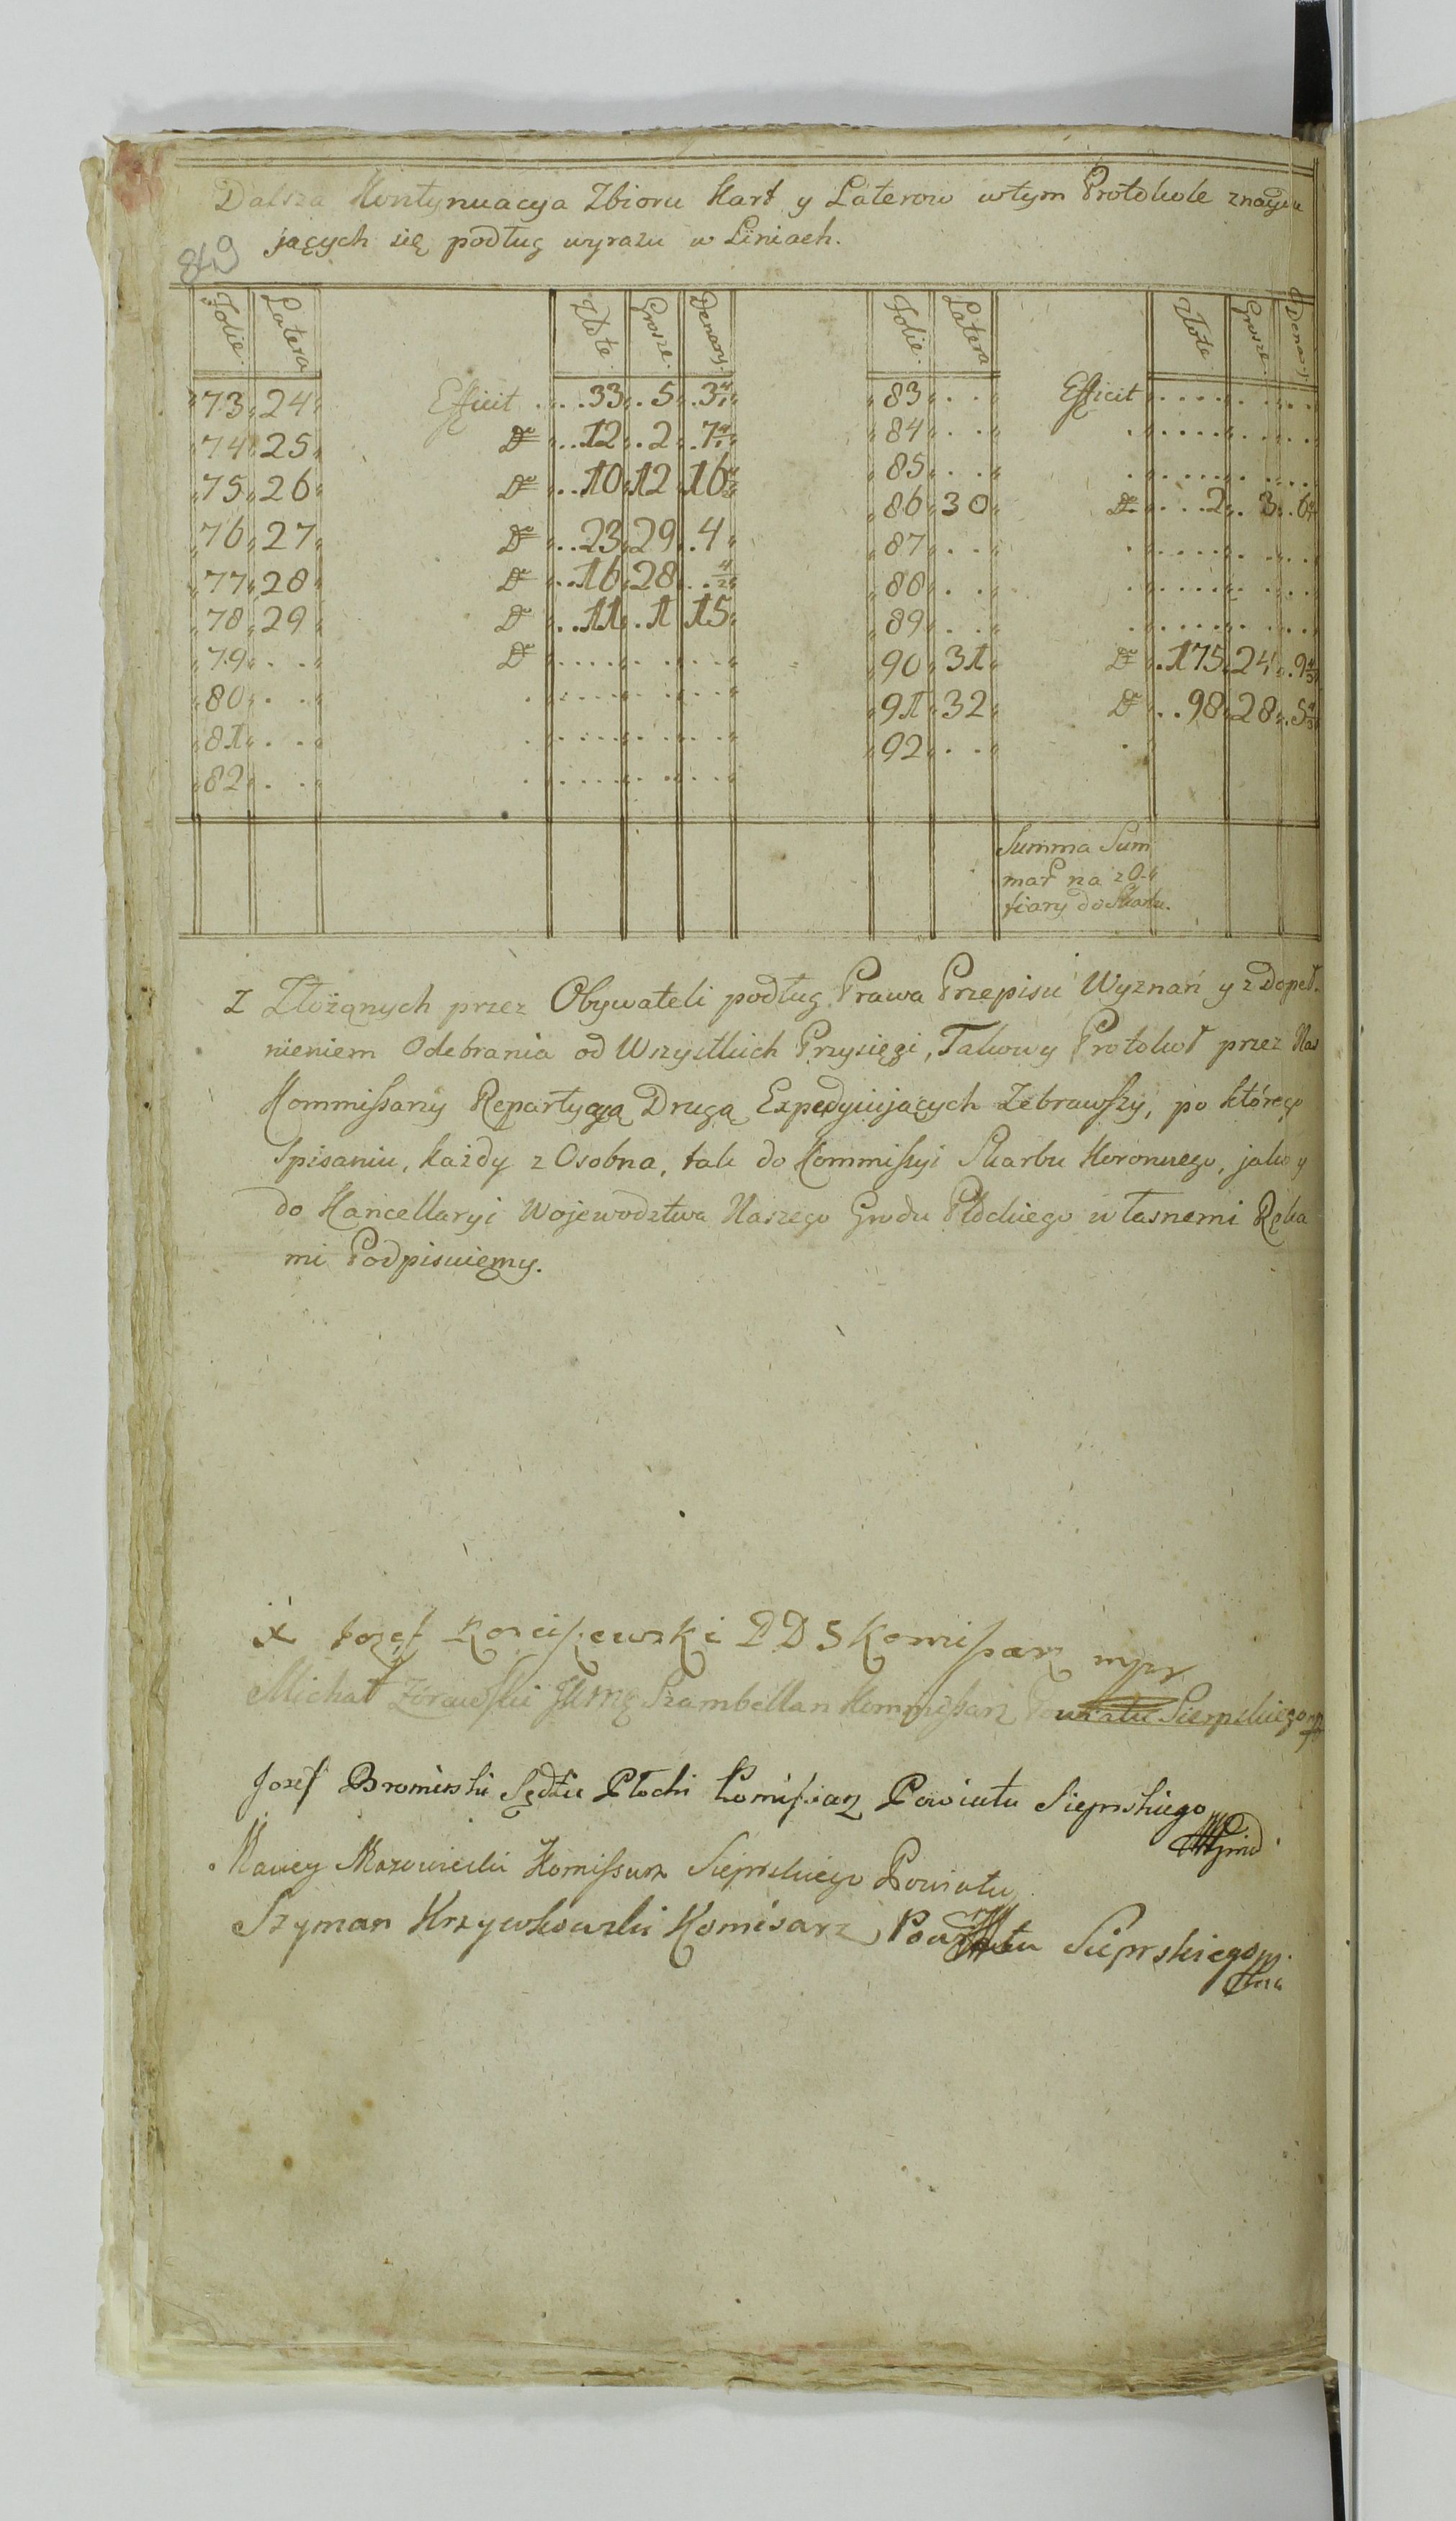 Dalsza Kontynuacya Zbioru Kart y Laterow wtym Protokole znaydu
jących się podług wyrazu w Liniach.
Folie. Latera Złote Grosze. Denary. Folie. Latera Złote Grosze
73 24 Efficit 33 5 3 83 Efficit
74 25 Do 12 2 7 84
75 26 Do 10 12 16 85
76 27 Do 23 29 4 86 30 Do 2 3 6
77 28 Do 16 28 87
78 29 Do 11 1 15 88
79 Do 89
80 90 31 Do 175 24 9
81 91 32 Do 98 28 5
82 92
Summa Sum
mar na z O-
fiary do Skarbu.
Z Złożonych przez Obywateli podług Prawa Przepisu Wyznań y z Dopeł-
nieniem Odebrania od Wszystkich Przysięgi, Takowy Protokuł przez Nas
Kommissarzy Repartycyą Drugą Expedyiujących Zebrawszy, po którego
Spisaniu, każdy z Osobna, tak do Kommissyi Skarbu Koronnego, jako y
do Kancellaryi Wojewodztwa Naszego Grodu Płockiego własnemi Ręka
mi Podpisuiemy.
X Jozef Kosciszewski P D S Komissarz mpr
Michał Zorawski JKMę Szambellan Kommissarz Powiatu Sierpskiego
Jozef Bromirski Sędzia Płocki Komissarz Powiatu Sieprskiego
Maciey Mazowiecki Komissarz Sieprskiego Powiatu
Szyman Krzywkowski Komisarz Powiatu Sieprskiego